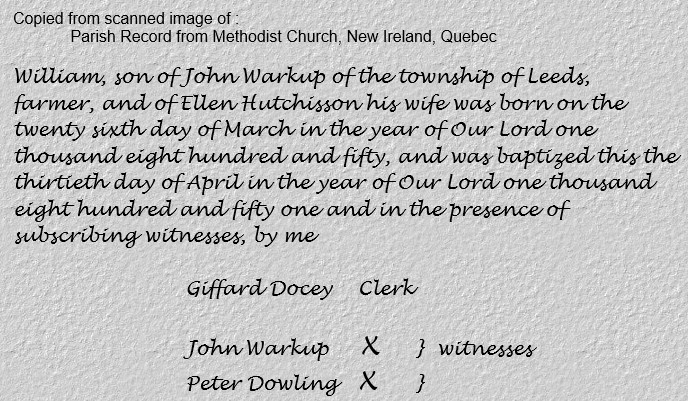 Copied from scanned image of :
Parish Record from Methodist Church, New Ireland, Quebec
William, son of John Warkup of the township of Leeds,
farmer, and of Ellen Hutchisson his wife was born on the
twenty sixth day of March in the year of Our Lord one
thousand eight hundred and fifty, and was baptized this the
thirtieth day of April in the year of Our Lord one thousand
eight hundred and fifty one and in the presence of
subscribing witnesses, by me
Giffard Docey Clerk
John Warkup X } witnesses
Peter Dowling X }